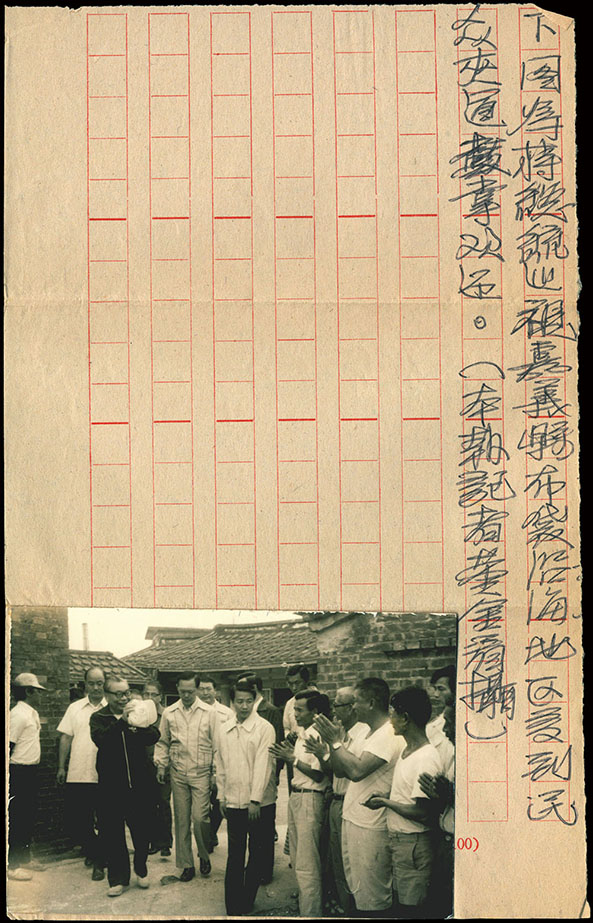 下图為蔣總統巡視嘉義縣布袋沿海地区受到民
众夾道鼓掌欢迎。(本報記者黃金攝)
00)